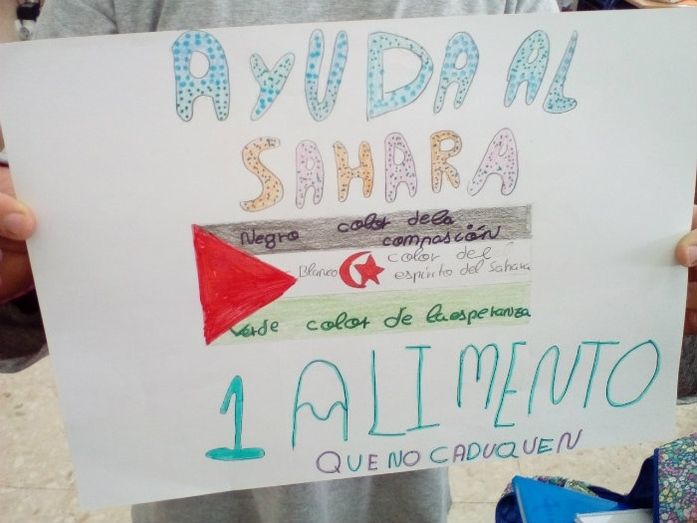 AYUDA AL
SAHARA
Negro color de la
compasción
Blanco color del
espirito del Sahara
Verde color de la esperanza
1 ALIMENTO
QUE NO CADUQUEN